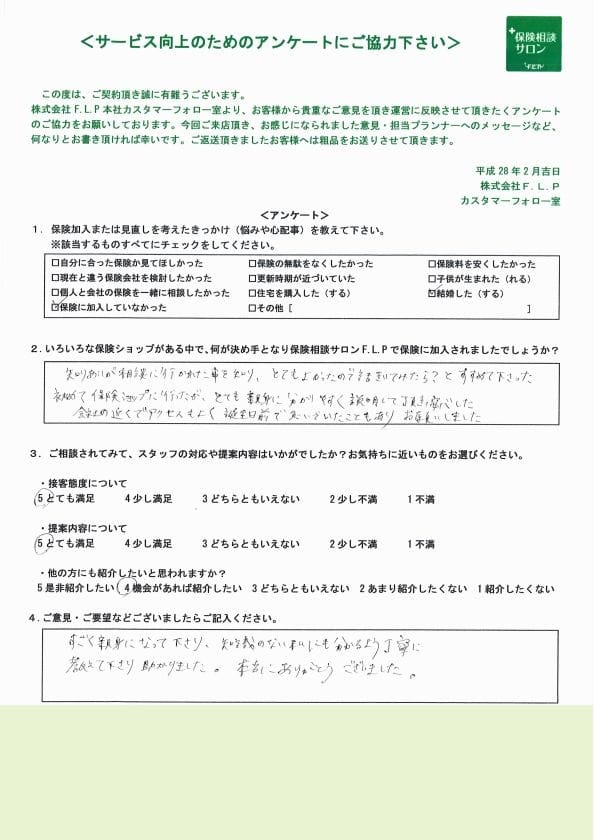 ＜サービス向上のためのアンケートにご協力下さい＞
保険相談
サロン
F.L.P
この度は、ご契約頂き誠に有難うございます。
株式会社F.L.P本社カスタマーフォロー室より、お客様から貴重なご意見を頂き運営に反映させて頂きたくアンケート
のご協力をお願いしております。今回ご来店頂き、お感じになられました意見・担当プランナーへのメッセージなど、
何なりとお書き頂ければ幸いです。ご返送頂きましたお客様へは粗品をお送りさせて頂きます。
平成28年2月吉日
株式会社F.L.P
カスタマーフォロー室
＜アンケート＞
1．保険加入または見直しを考えたきっかけ（悩みや心配事）を教えて下さい。
※該当するものすべてにチェックをしてください。
□自分に合った保険か見てほしかった □保険の無駄をなくしたかった □保険料を安くしたかった
□現在と違う保険会社を検討したかった □更新時期が近づいていた □子供が生まれた（れる）
□個人と会社の保険を一緒に相談したかった □住宅を購入した（する） ☑結婚した（する）
☑保険に加入していなかった □その他［ ］
2．いろいろな保険ショップがある中で、何が決め手となり保険相談サロンF.L.Pで保険に加入されましたでしょうか？
知りあいが相談に行かれた事を知り、とてもよかったので話をきいてみたら？とすすめて下さった
初めて保険ショップに行けたが、とても親身に分かりやすく説明して頂き安心した
会社の近くでアクセスもよく誕生日前で急いでいたこともあり お願いしました
3．ご相談されてみて、スタッフの対応や提案内容はいかがでしたか？お気持ちに近いものをお選びください。
・接客態度について
5とても満足 4少し満足 3どちらともいえない 2少し不満 1不満
・提案内容について
5とても満足 4少し満足 3どちらともいえない 2少し不満 1不満
・他の方にも紹介したいと思われますか？
5是非紹介したい 4機会があれば紹介したい 3どちらともいえない 2あまり紹介したくない 1紹介したくない
4．ご意見・ご要望などございましたらご記入ください。
すごく親身になって下さり、知識のない私にも分かるよう丁寧に
教えて下さり助かりました。本当にありがとうございました。